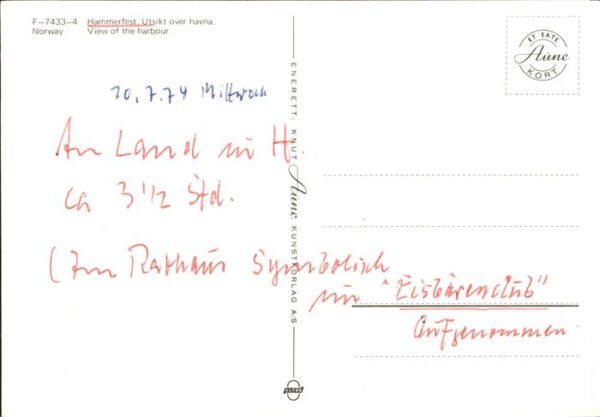 F-7433-4 Hammerfest. Utsikt over havna.
Norway View of the harbour
ET EKTE
Aune
KORT
10.7.74 Mittwoch
An Land in H.
ca 3 1/2 Std.
(Im Rathaus Symbolisch
im "Eisbärenclub"
aufgenommen.
ENERETT: KNUT Aune KUNSTFORLAG A/S
ULTRA